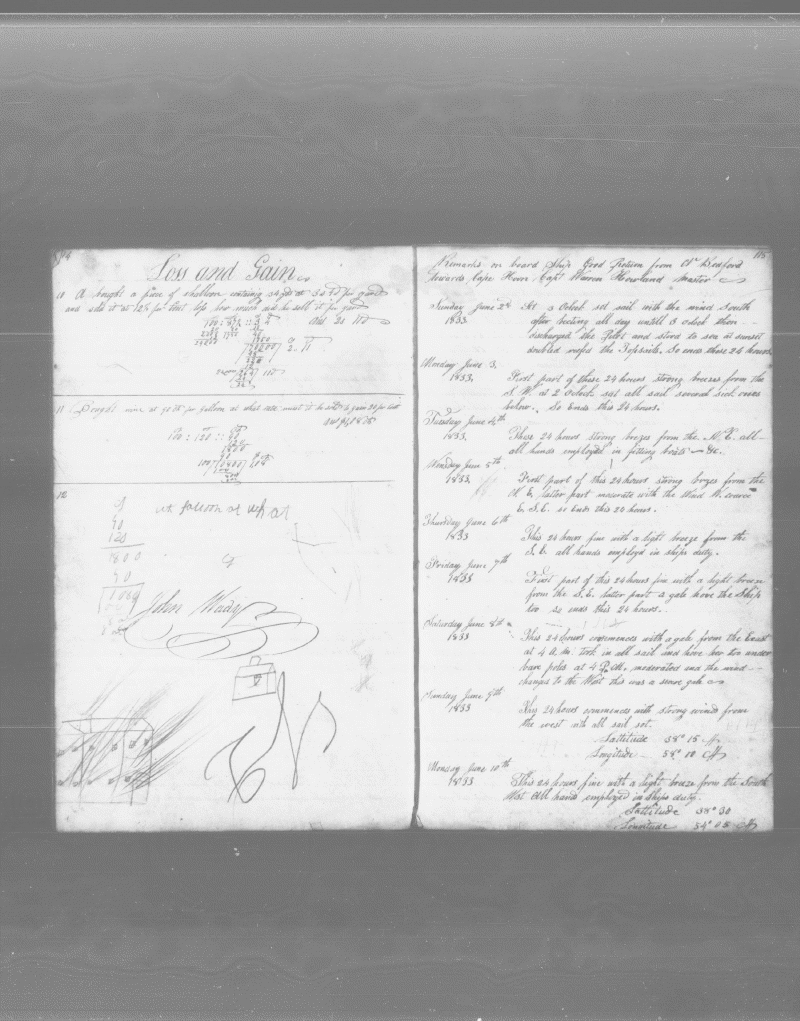 Loss and Gain
10 A bought a piece of shalloon containg 34 yds at per yard
and sold it at 12½ pr Cent loss how much did he sell it pr yard
Ans 2s 11d
11 Bought wine at 90 cts per gallon at what rate must it be sold to gain 20 per Cent
Ans $1,08 cts
12
at fallson at what
9
90
120
1800
90
John Wady
115
Remarks on board Ship Good Return from N. Bedford
towards Cape Horn Capt Warren Howland Master
Sunday June 2d At 9 oclock set sail with the wind South
1833 after beeting all day untill 3 oclock then
discharged the Pilot and stood to sea at sunset
doubled reefed the Topsails, So ends these 24 hours
Monday June 3,
1833, First part of these 24 hours strong breezes from the
S. W. at 2 oclock set all sail
below. So Ends this 24 hours.
Tuesday June 4th
1833. These 24 hours strong brezes from the N. E. all
all hands employed in fitting boats &c.
Wensday Jun 5th
1833 First part of this 24 hours strong brezes from the
N E, latter part moderate with the Wind
E. S. E. so Ends this 24 hours.
Thursday June 6th
1833 This 24 hours fine with a light breeze from the
S. E. all hands employd in ships duty.
Friday June 7th
1833 First part of this 24 hours fine with a light breeze
from the S. E. latter part a gale hove the Ship
too so ends this 24 hours.
Saturday June 8th
1833 This 24 hours commences with a gale from the East
at 4 A. M. took in all sail and hove her too under
bare poles at 4 P. M. moderated and the wind
changes to the West this was a severe gale
Sunday June 9th
1833 This 24 hours comences with strong winds from
the west with all sail sot.
Lattitude 38° 15
Longitude 58° 10
Monday June 10th
1833 This 24 hours fine with a light breeze from the South
West All hands employed in Ships duty.
Lattitude 38° 30
Longitude 54° 05